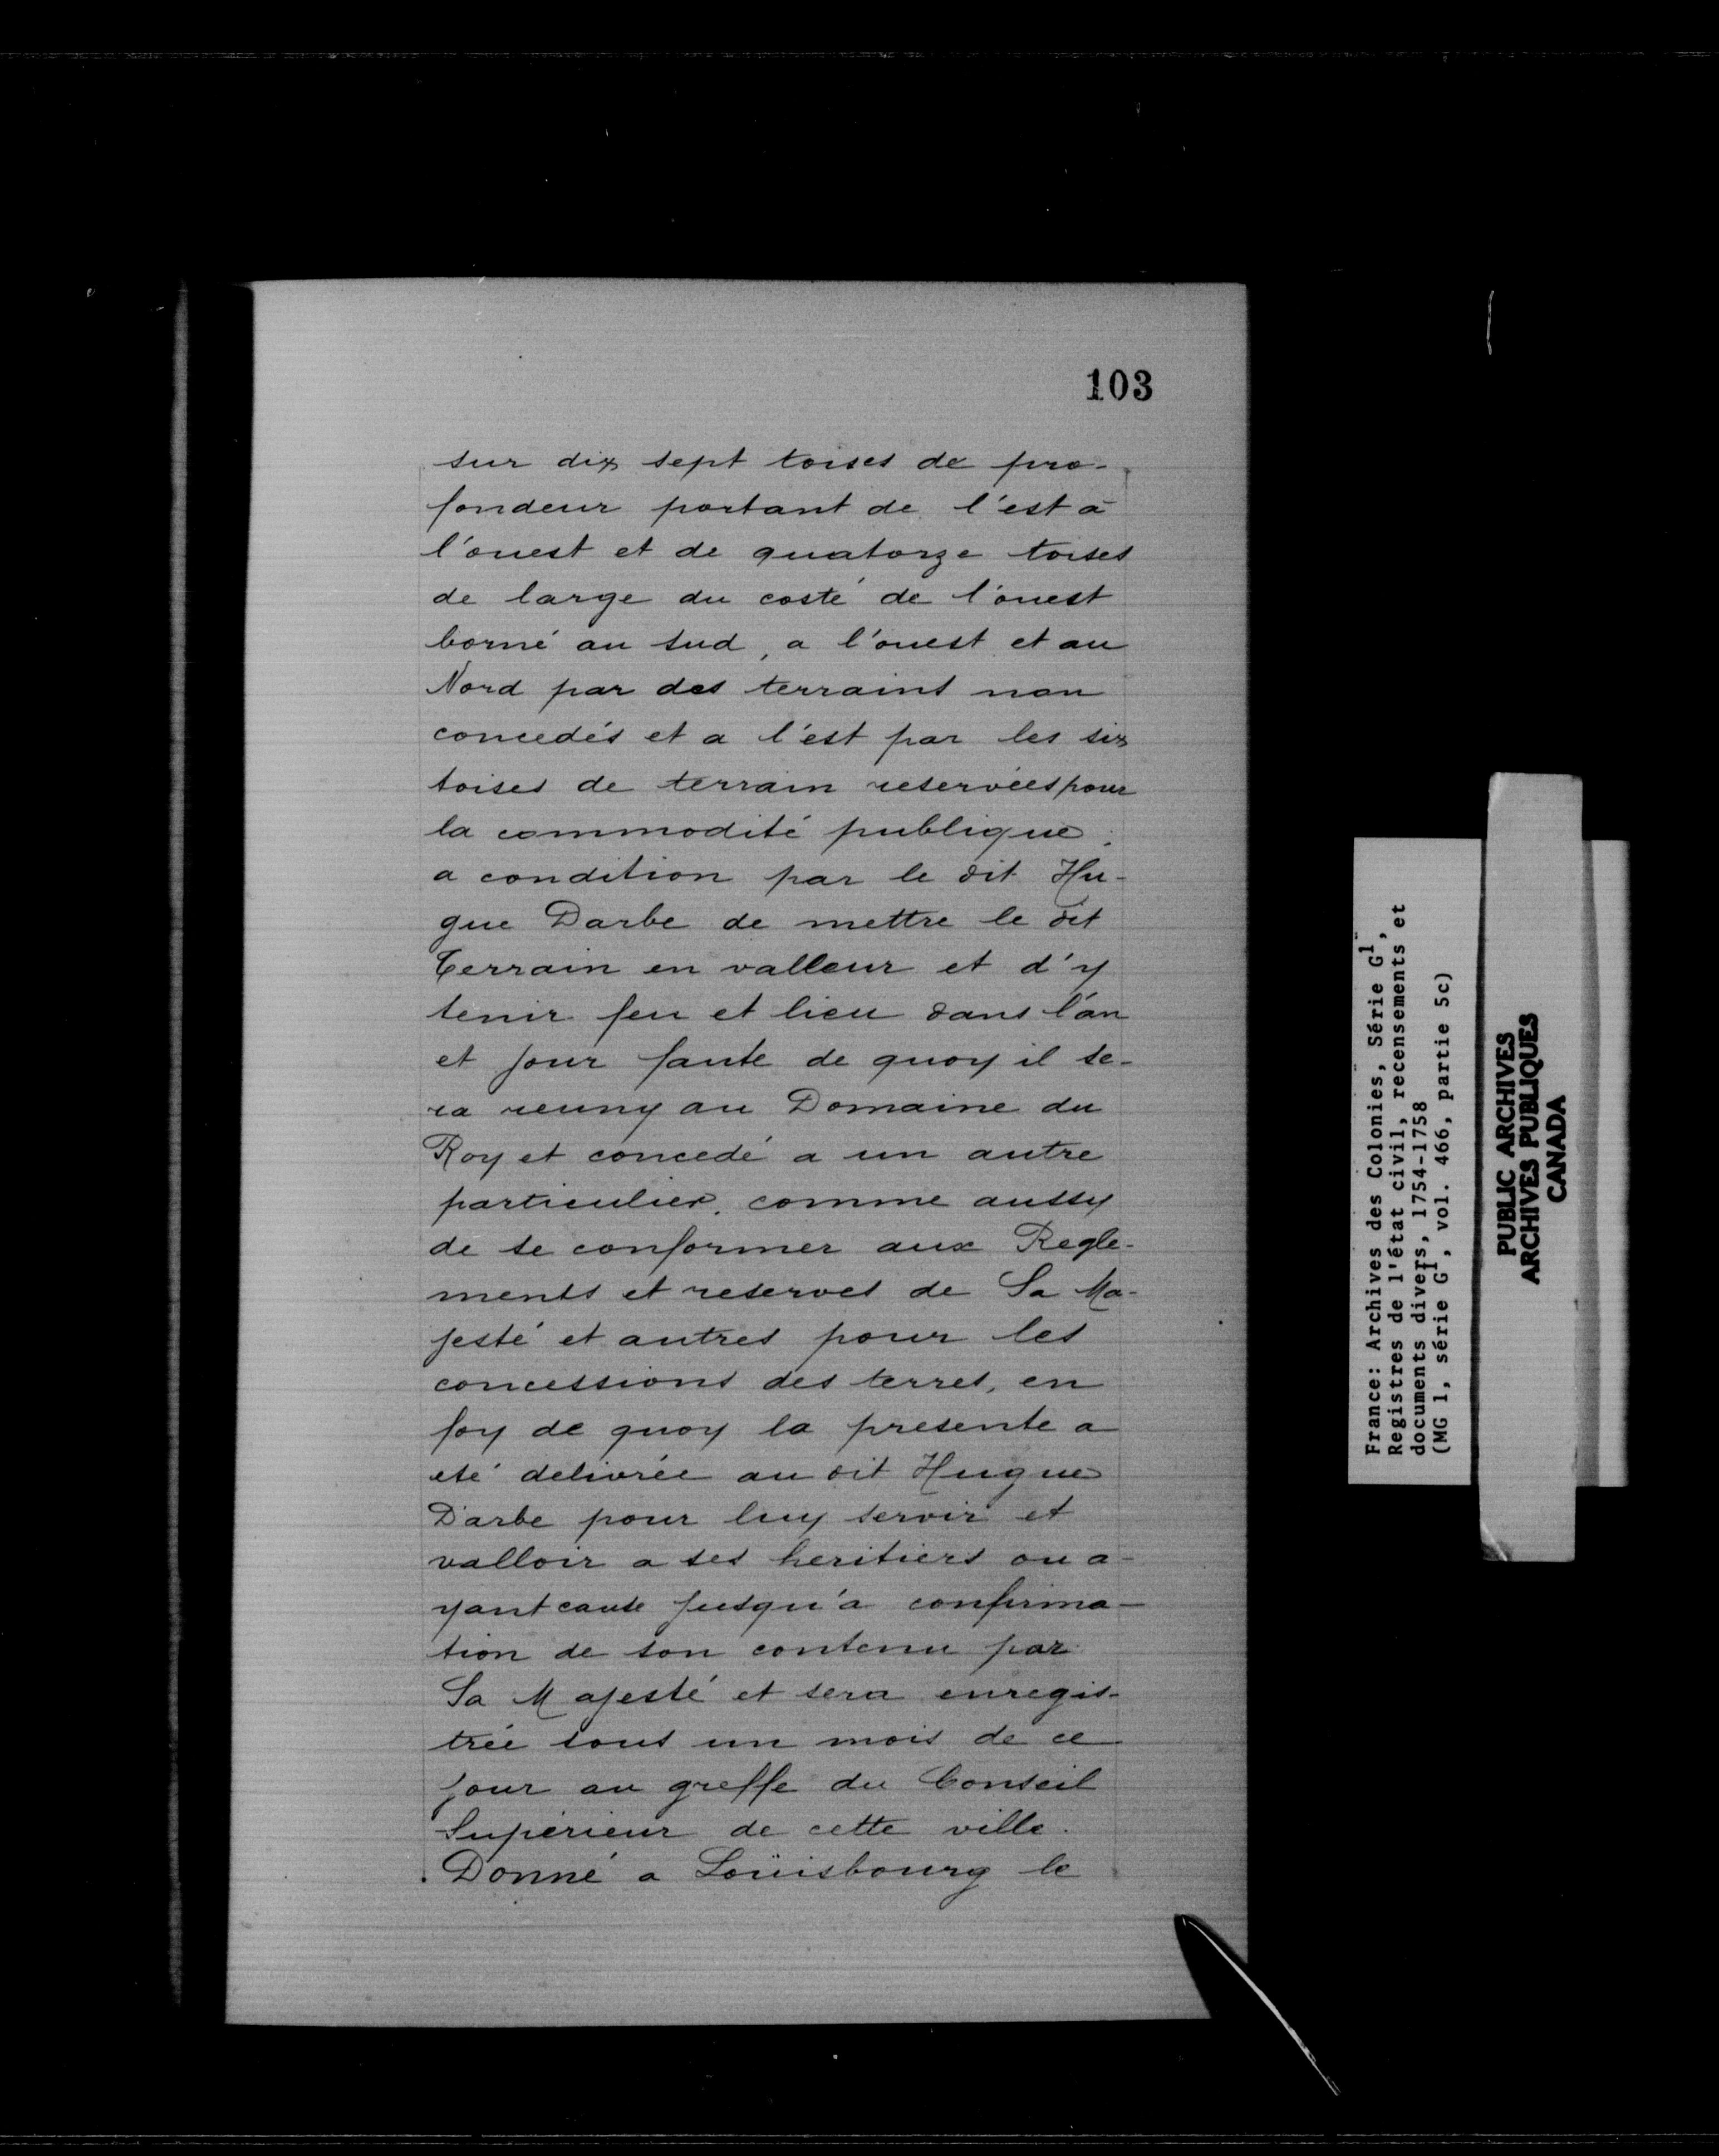 103
sur dix sept toises de pro-
fondeur portant de l'est a
l'ouest et de quatorze toises
de large du costé de l'ouest
borné au sud, a l'ouest et au
Nord par des terrains non
concedés et a l'est par les six
toises de terrain reservées pour
la commodité publique.
a condition par le dit Hu-
gue Darbe de mettre le dit
Terrain en valleur et d'y
tenir feu et lieu dans l'an
et jour faute de quoy il se-
ra reuny au Domaine du
Roy et concedé a un autre
particulier. comme aussy
de se conformer aux Regle-
ments et reserves de Sa Ma-
jesté et autres pour les
concessions des terres, en
foy de quoy la presente a
eté delivrée au dit Hugue
Darbe pour luy servir et
valloir a ses heritiers ou a-
yant cause jusqu'a confirma-
tion de son contenu par
Sa Majesté et sera enregis-
trée sous un mois de ce
jour au greffe du Conseil
Supérieur de cette ville.
Donné a Loüisbourg le
France: Archives des Colonies, Série G1,
Registres de l'état civil, recensements et
documents divers, 1754-1758
(MG 1, série G1, vol. 466, partie 5c)
PUBLIC ARCHIVES
ARCHIVES PUBLIQUES
CANADA